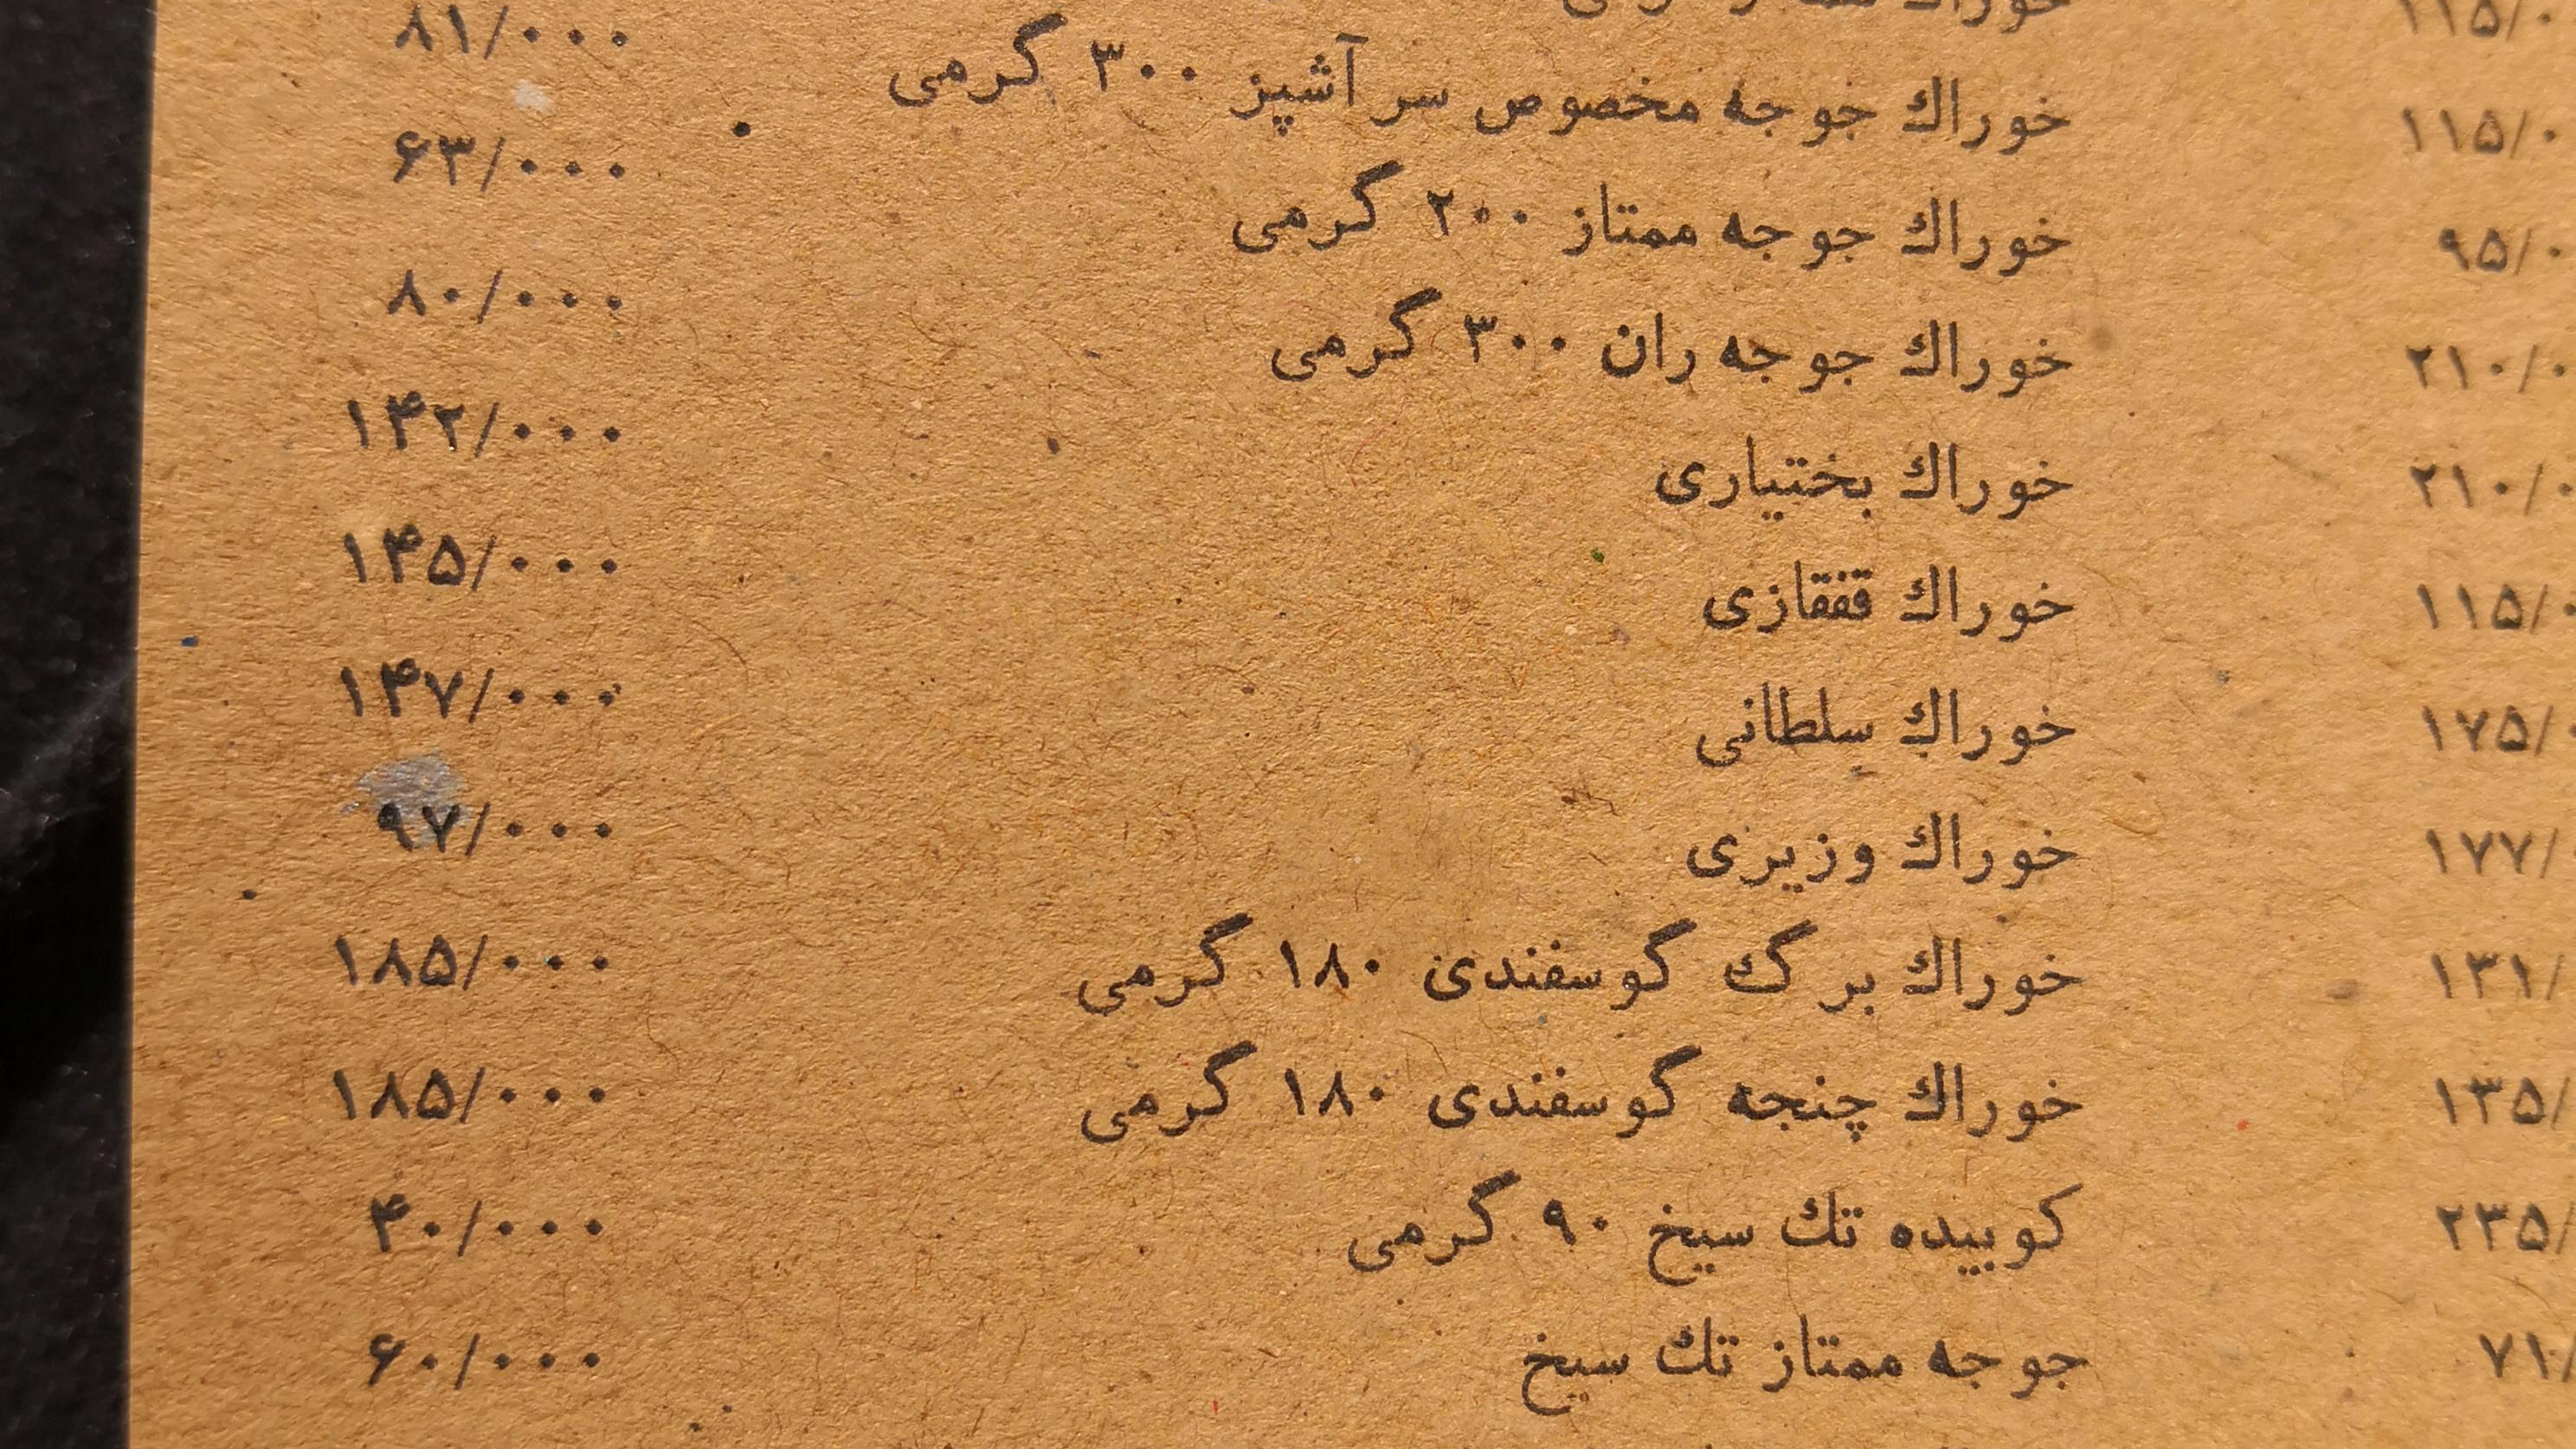 ۱۱۵/۰
۱۱۵/۰
۹۵/۰
۲۱۰/۰
۲۱۰/۰
۱۱۵/
۱۷۵/
۱۷۷/
۱۳۱/
۱۳۵/
۲۳۵/
۷۱/
خوراك جوجه مخصوص سر آشپز ۳۰۰ گرمی ۸۱/۰۰۰
خوراك جوجه ممتاز ۲۰۰ گرمی ۶۳/۰۰۰
خوراك جوجه ران ۳۰۰ گرمی ۸۰/۰۰۰
خوراك بختیاری ۱۴۲/۰۰۰
خوراك قفقازی ۱۴۵/۰۰۰
خوراك سلطانی ۱۴۷/۰۰۰
خوراك وزیری ۹۷/۰۰۰
خوراك برگ گوسفندی ۱۸۰ گرمی ۱۸۵/۰۰۰
خوراك چنجه گوسفندی ۱۸۰ گرمی ۱۸۵/۰۰۰
كوبیده تك سیخ ۹۰ گرمی ۴۰/۰۰۰
جوجه ممتاز تك سیخ ۶۰/۰۰۰